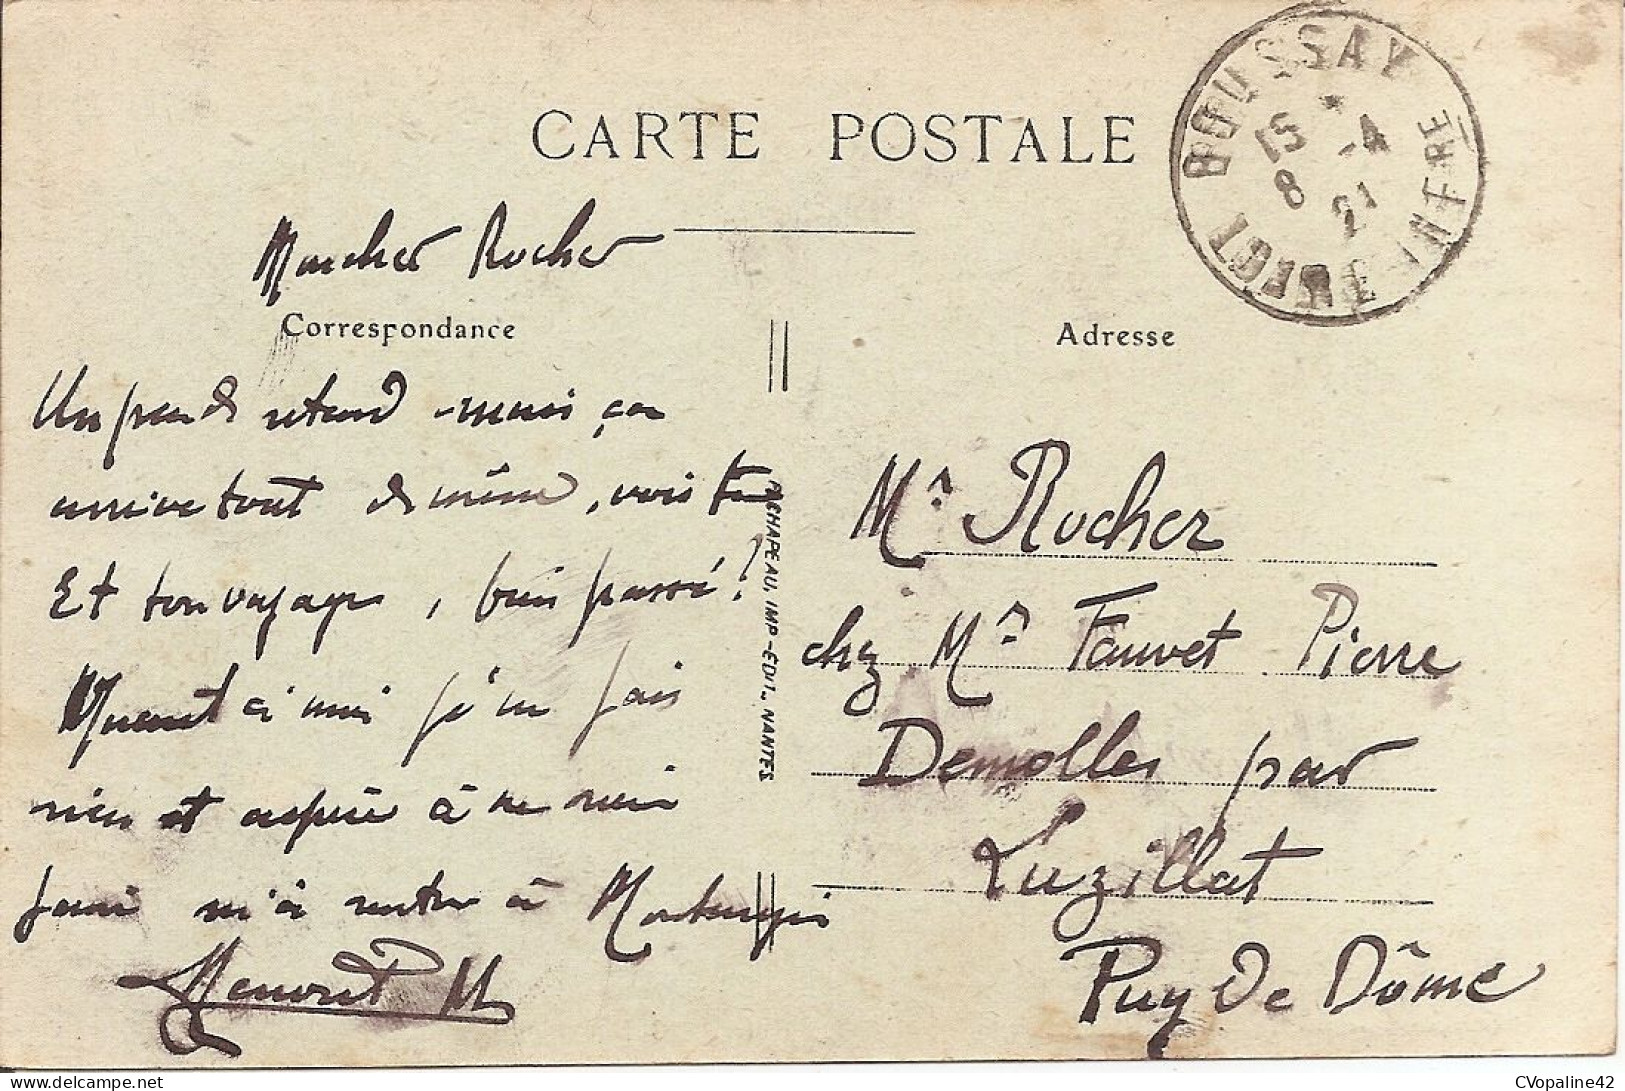 CARTE POSTALE
BOUSSAY
LOIRE INFRE
15 - 4
8 21
Mon cher Rocher
Correspondance
Adresse
Un peu de retard mais ça
arrive tout de même, vois tu
Et ton voyage, bien passé ?
Quant à moi je ne fais
rien et aspire à ne rien
faire ni à rentrer à Montargis
M
CHAPEAU, IMP.-EDIT., NANTES
Mr Rocher
chez Mr Fauvet Pierre
Demolles par
Luzillat
Puy De Dôme
CVopaline42